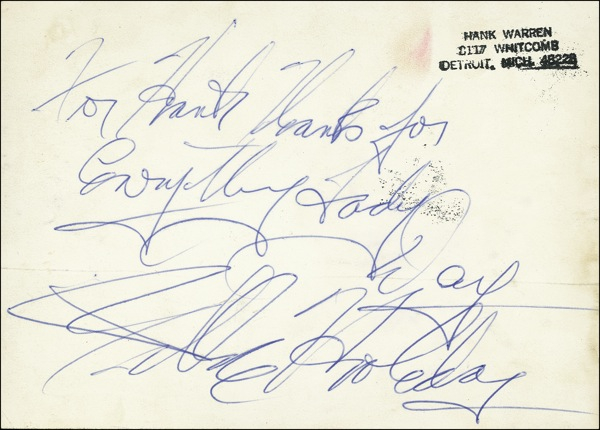 HANK WARREN
8117 WHITCOMB
DETROIT, MICH. 48228
For Hank Thanks for
Everything Lady
Day
Billie Holiday